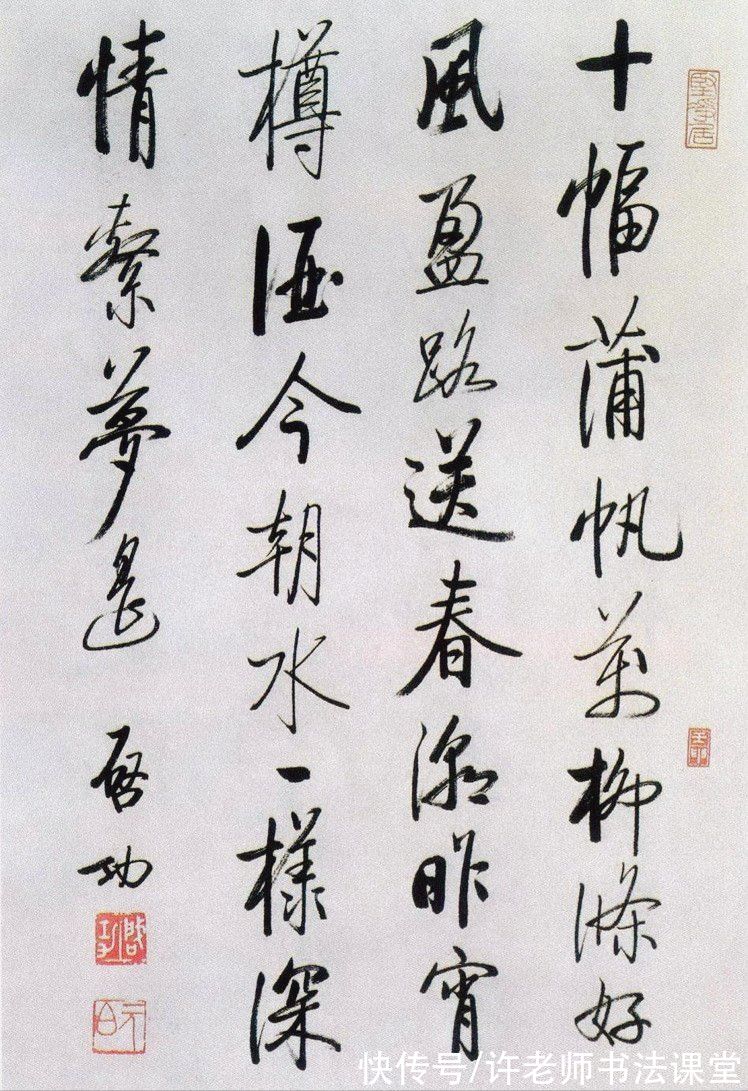 十幅蒲帆萬柳條好
風盈路送春潮昨宵
樽酒今朝水一樣深
情繫夢遥
啓功
啟功
元白
快传号/许老师书法课堂